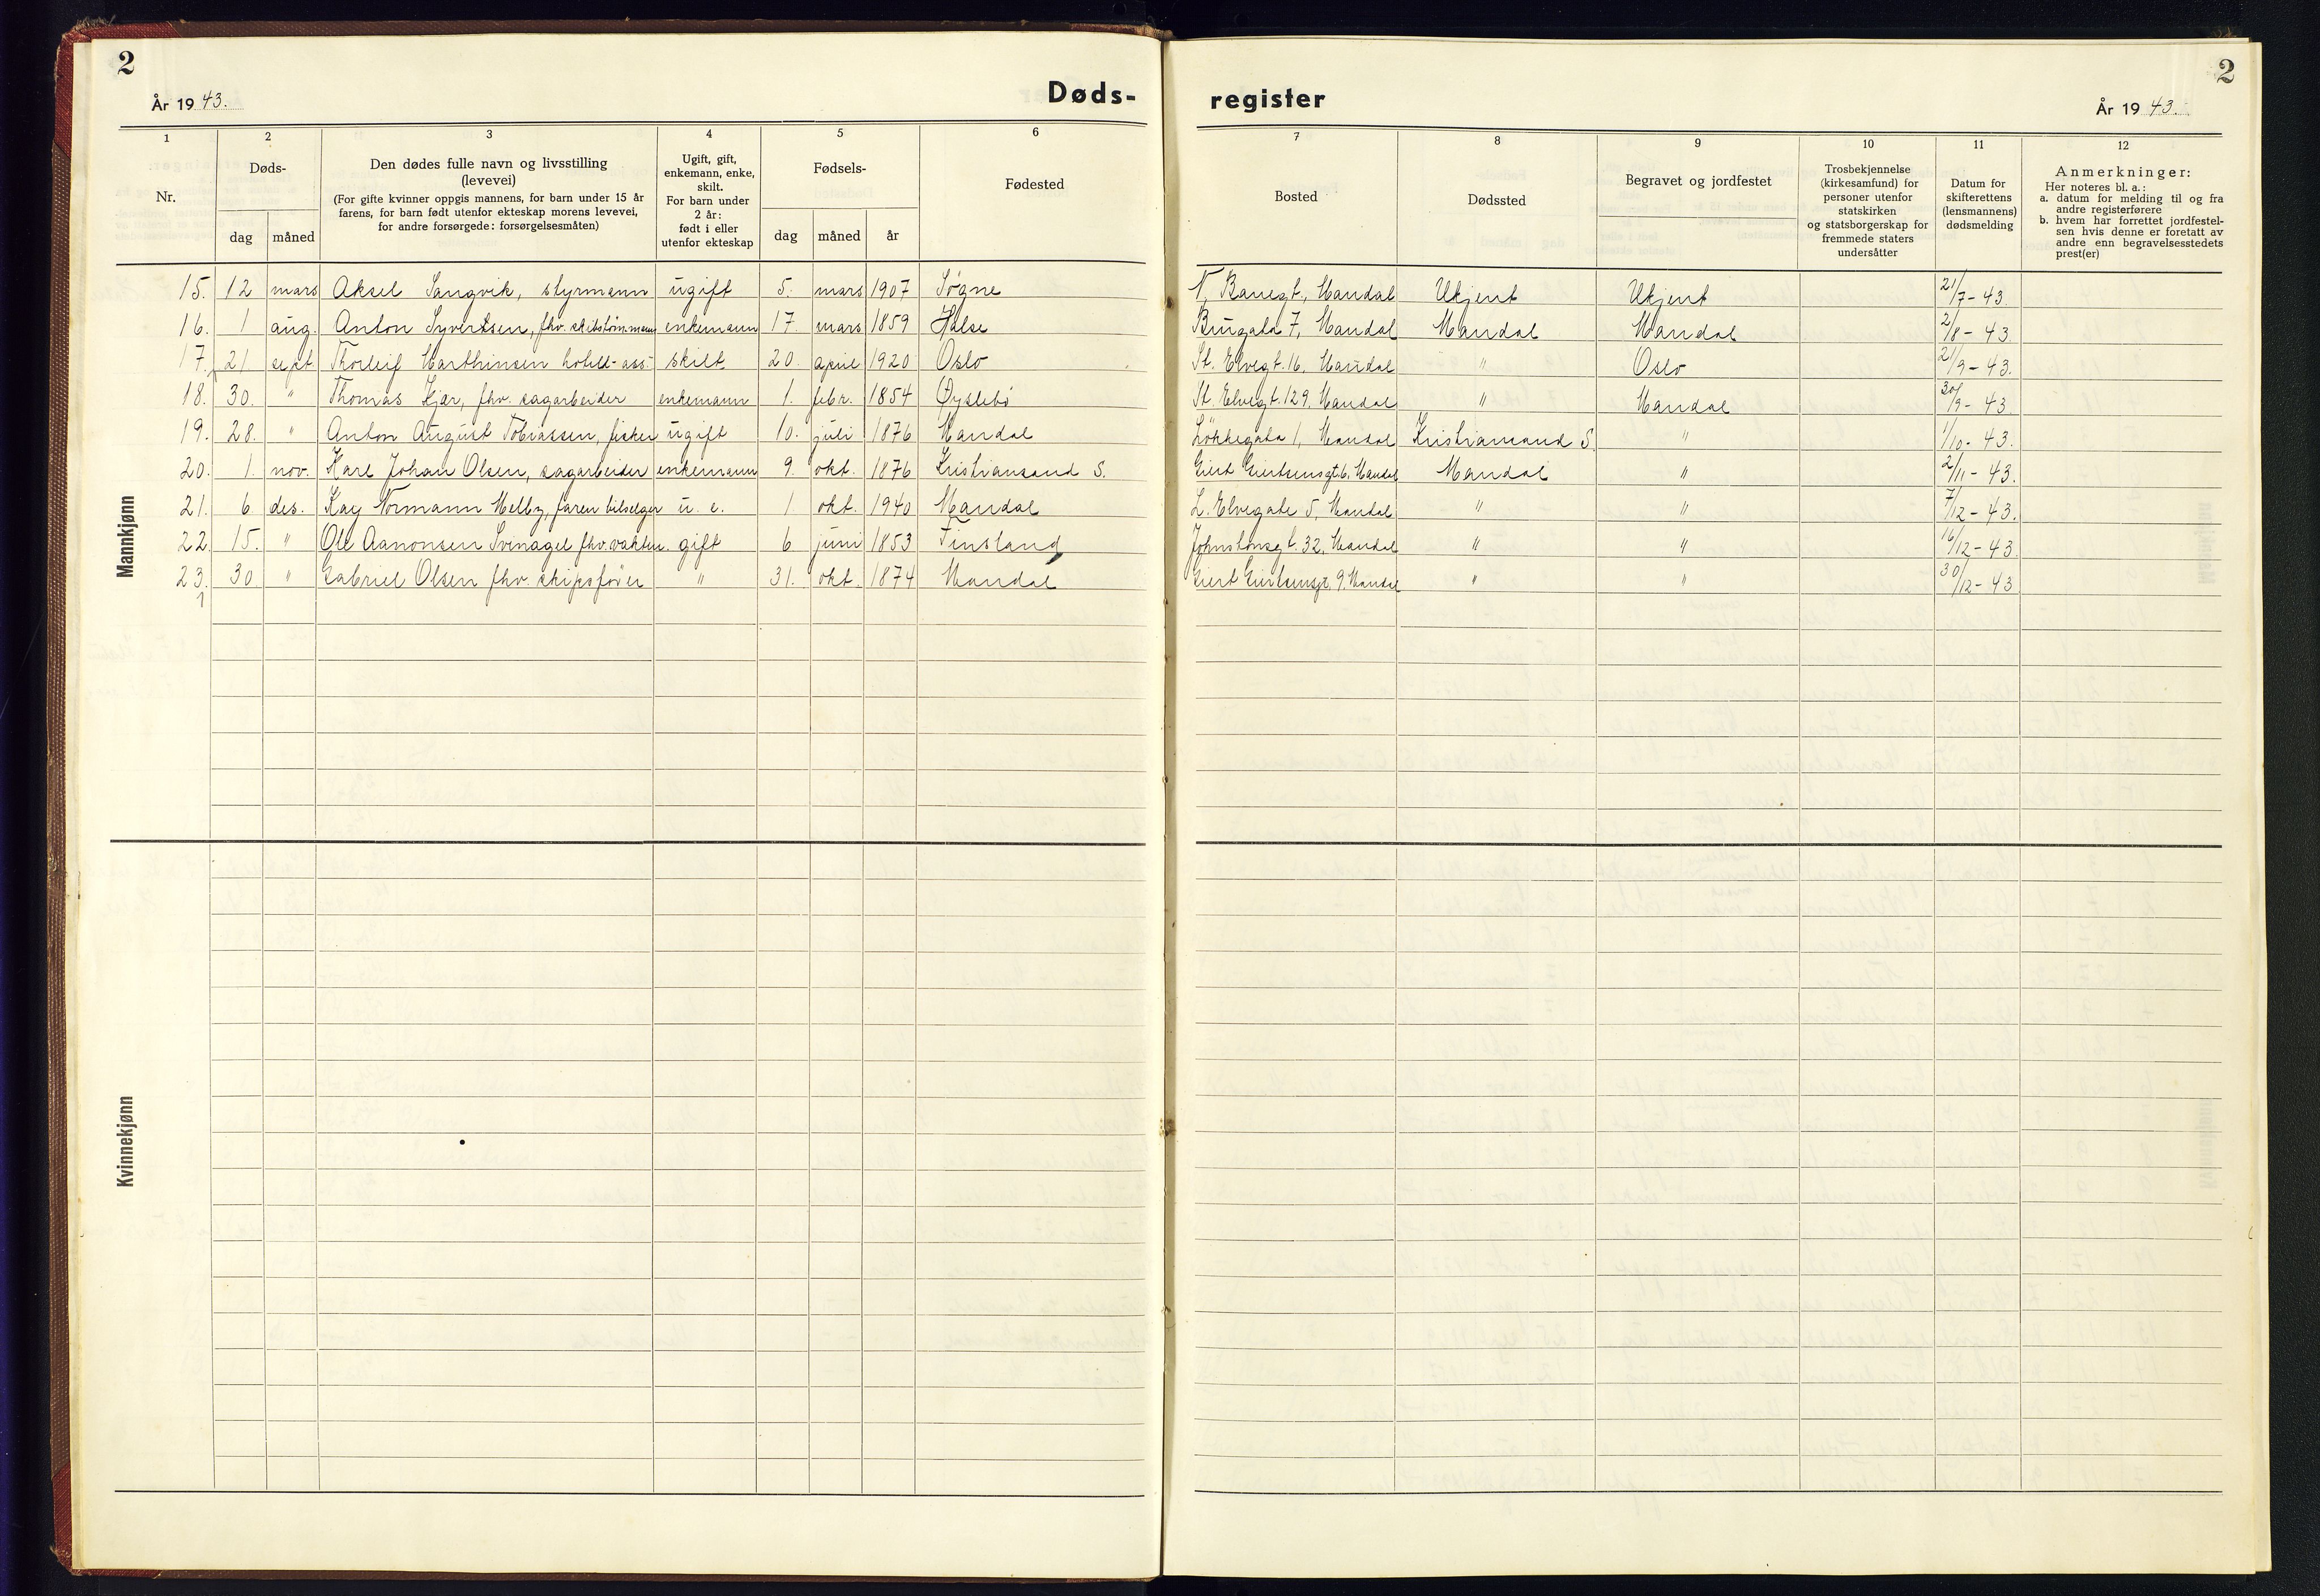 2
År 1943.
Døds-
1
2
3
4
5
6
Nr.
Døds-
dag
måned
Den dødes fulle navn og livsstilling
(levevei)
(For gifte kvinner oppgis mannens, for barn under 15 år
farens, for barn født utenfor ekteskap morens levevei,
for andre forsørgede: forsørgelsesmåten)
Ugift, gift,
enkemann, enke,
skilt.
For barn under
2 år:
født i eller
utenfor ekteskap
Fødsels-
dag
måned
år
Fødested
Mannkjønn
15. 12 mars Aksel Sangvik, styrmann ugift 5. mars 1907 Søgne
16. 1 aug. Anton Syvertsen, fhv. skibstømmann enkemann 17. mars 1859 Halse
17. 21 sept. Thorleif Marthinsen hotell-ass. skilt 20. april 1920 Oslo
18. 30. " Thomas Kjær, fhv. sagarbeider enkemann 1. febr. 1854 Øyslebø
19. 28. " Anton August Tobiassen, fisker ugift 10. juli 1876 Mandal
20. 1. nov. Karl Johan Olsen, sagarbeider enkemann 9. okt. 1876 Kristiansand S.
21. 6. des. Kay Normann Melby, faren bilselger u. e. 1 okt. 1940 Mandal
22. 15. " Ole Aanonsen Svinagel fhv. vaktm. gift 6 juni 1853 Finsland
23. 30 " Gabriel Olsen fhv. skipsfører " 31. okt. 1874 Mandal
Kvinnekjønn
register
2
År 1943.
7
8
9
10
11
12
Bosted
Dødssted
Begravet og jordfestet
Trosbekjennelse
(kirkesamfund) for
personer utenfor
statskirken
og statsborgerskap for
fremmede staters
undersåtter
Datum for
skifterettens
(lensmannens)
dødsmelding
Anmerkninger:
Her noteres bl. a.:
a. datum for melding til og fra
andre registerførere
b. hvem har forrettet jordfestel-
sen hvis denne er foretatt av
andre enn begravelsesstedets
prest(er)
N. Banegt., Mandal Ukjent Ukjent 21/7-43.
Brugata 7, Mandal Mandal Mandal 2/8-43.
St. Elvegt. 16, Mandal " Oslo 21/9-43.
St. Elvegt. 129, Mandal " Mandal 30/9-43.
Løkkegata 1, Mandal Kristiansand S. " 1/10-43.
Giert Giertsensgt. 6, Mandal Mandal " 2/11-43.
L. Elvegate 5, Mandal " " 7/12-43.
Johnstonsgt. 32, Mandal " " 16/12-43.
Giert Giertsensgt. 9, Mandal " " 30/12-43